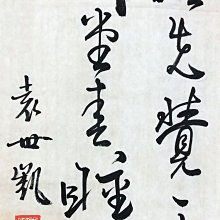 先覺
堂春睡
袁世凱